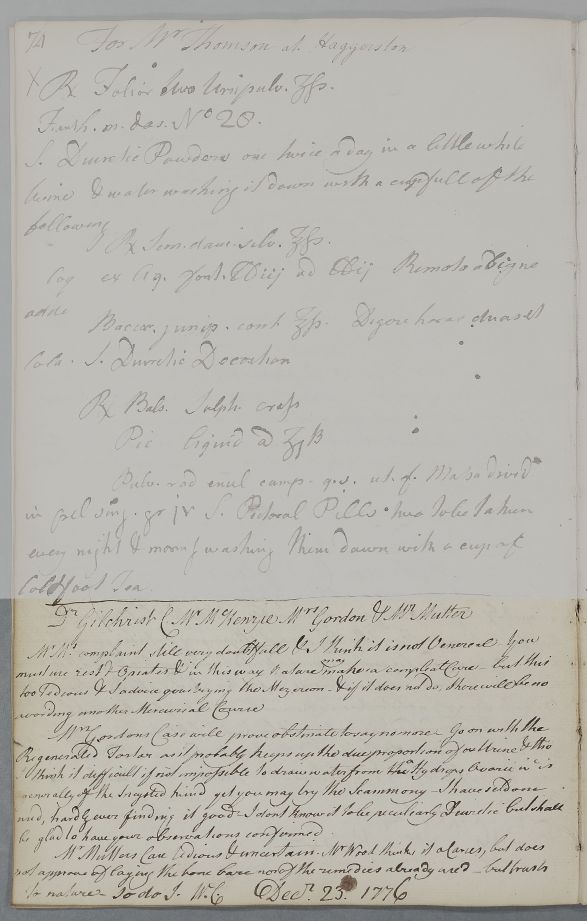 74 For Mr Thomson at Haggerston
X ℞ Folior Uvo Ursi pulv. ℥fs.
F. in d. as. No 28.
S. Diuretic Powders one twice a day in a little white
wine & water washing it down with a cupfull of the
following
℞ Sem. dauc. silv. ℥fs.
Coq ex Aq. font. ad Remoto ab igne
adde
Baccar. junip. cont ℥fs. Digere horas duas et
Cola. S. Diuretic Decoction
℞ Bals. Sulph. crass
Pic liquid a
Pulv. rad enul camp. q.s. ut f. Massa divid
in pil sing. gr iv S. Pectoral Pills two to be taken
every night & morng washing them down with a cup of
Coltsfoot Tea
Dr Gilchrist C Mr McKenzie Mrs Gordon & Mr Mutter
Mr Ms complaint still very doubtfull & I think it is not Venereal You
must use rest & Opiates & in this way Nature may make a compleat Cure but this
too Tedious & I advice you trying the Mezereon & if it does not do, there will be no
avoiding another Mercurial Course
Mrs Gordons Case will prove obstinate to say no more Go on with the
Regenerated Tartar as it probably keeps up the due proportion of ye Urine & tho
I think it difficult if not impossible to draw water from the Hydrops Ovarii wh is
generally of the Incysted kind yet you may try the Scammony I have seldom
used, hardly ever finding it good I dont know it to be peculiarly Diuretic but shall
be glad to have your observations confirmed
Mr Mutters Case tedious & uncertain. Mr Wood thinks it a Caries, but does
not approve of laying the bone bare nor of the remedies already used but trusts
to nature To do I. W.C Decr 23. 1776